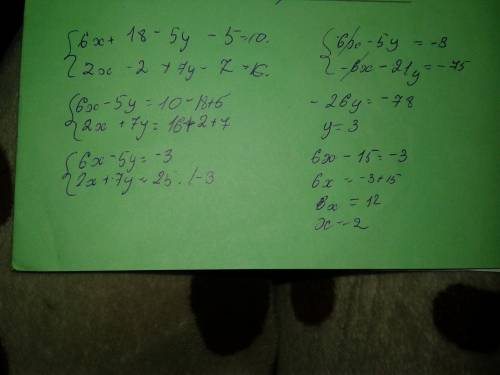 {6x + 18 - 5y - 5 = 10.
{2x - 2 + 7y - 7 = 16.
{6x - 5y = 10 - 18 + 5
{2x + 7y = 16 + 2 + 7
{6x - 5y = -3
{2x + 7y = 25. | -3
{6x - 5y = -3
{-6x - 21y = -75
- 26y = -78
y = 3
6x - 15 = -3
6x = -3 + 15
6x = 12
x = 2